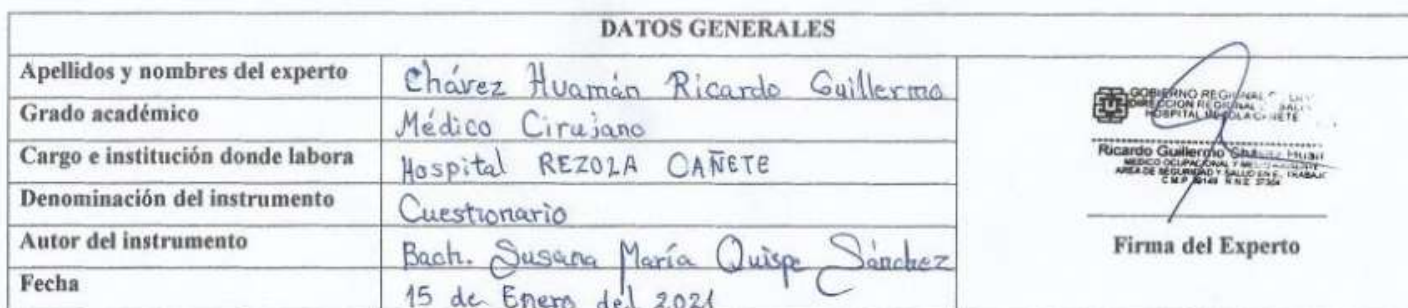 DATOS GENERALES
Apellidos y nombres del experto Chávez Huamán Ricardo Guillermo
Grado académico Médico Cirujano
Cargo e institución donde labora Hospital REZOLA CAÑETE
Denominación del instrumento Cuestionario
Autor del instrumento Bach. Susana María Quispe Sánchez
Fecha 15 de Enero del 2021
GOBIERNO REGIONAL
DIRECCION REGIONAL
HOSPITAL REZOLA CAÑETE
Ricardo Guillermo
MEDICO OCUPACIONAL Y
AREA DE SEGURIDAD Y SALUD EN EL TRABAJO
Firma del Experto